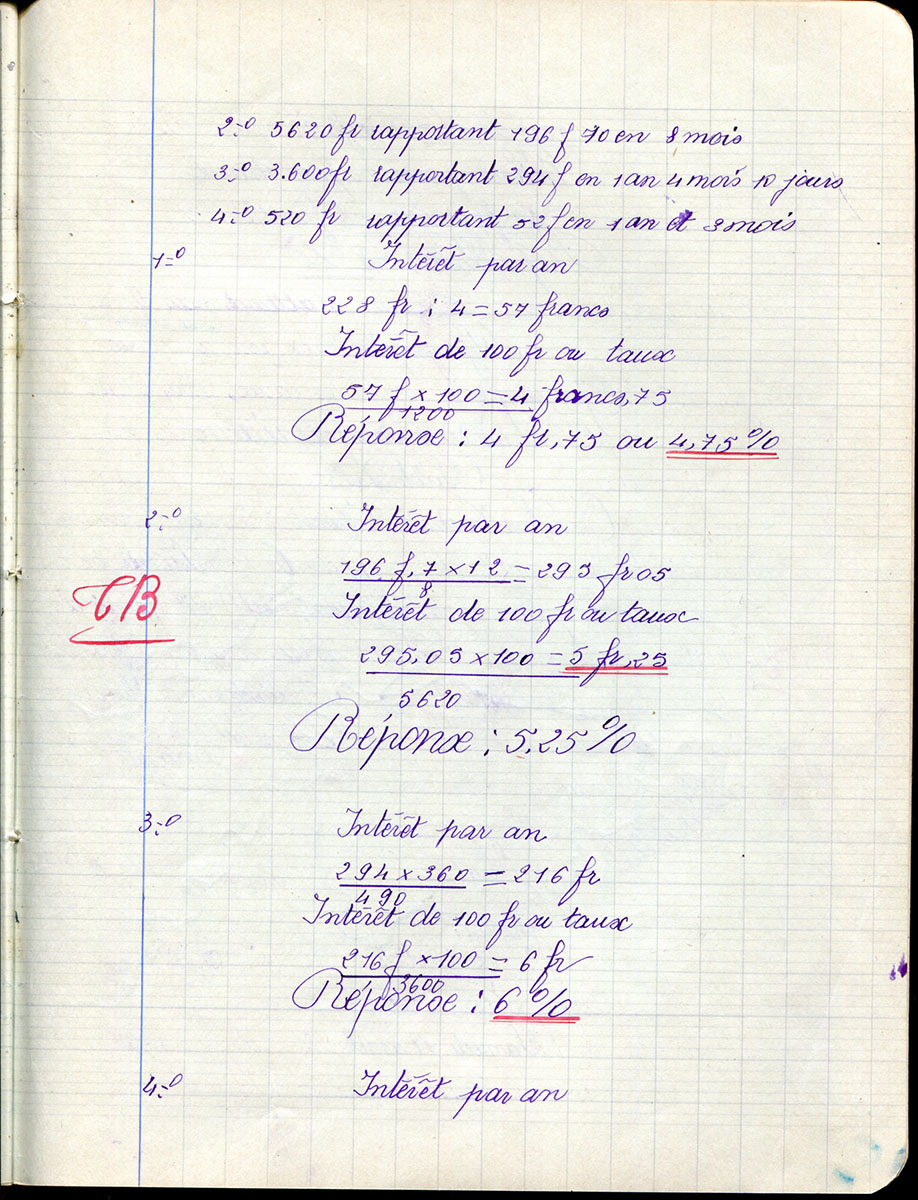 2=º 5620 fr rapportant 196 f 70 en 8 mois
3=º 3.600fr rapportant 294 f en 1 an 4 mois 10 jours
4=º 520 fr rapportant 52 f en 1 an et 3 mois
1=º Intérêt par an
228 fr : 4 = 57 francs
Intérêt de 100 fr ou taux
57 f × 100 = 4 francs,75
1200
Réponse : 4 fr,75 ou 4,75 %
2=º Intérêt par an
196 f,7 × 12 = 293 fr 05
8
TB
Intérêt de 100 fr ou taux
295,05 × 100 = 5 fr,25
5620
Réponse : 5,25 %
3=º Intérêt par an
294 × 360 = 216 fr
490
Intérêt de 100 fr ou taux
216 f × 100 = 6 fr
3600
Réponse : 6 %
4=º Intérêt par an